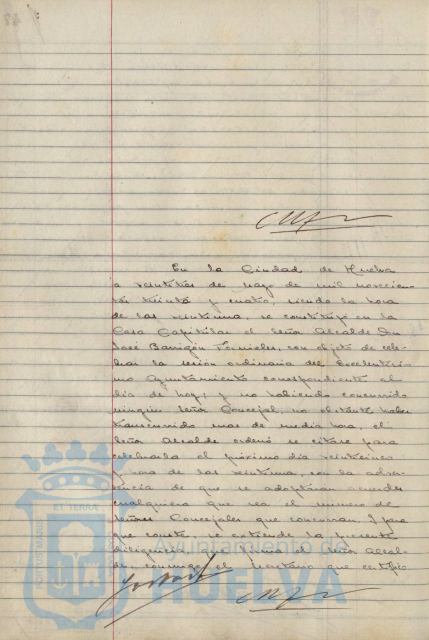 En la Ciudad de Huelva
a veintitres de mayo de mil novecien-
tos treinta y cuatro, siendo la hora
de las veintiuna, se constituyó en la
Casa Capitular el Señor Alcalde Don
José Barrigón Fornieles, con objeto de cele-
brar la sesión ordinaria del Excelentísi-
mo Ayuntamiento correspondiente al
dia de hoy, y no habiendo concurrido
ningun Señor Concejal, no obstante haber
transcurrido mas de media hora, el
Señor Alcalde ordenó se citase para
celebrarla el próximo dia veinticinco
y hora de las veintiuna, con la adver-
tencia de que se adoptarán acuerdos
cualquiera que sea el número de
Señores Concejales que concurran. Y para
que conste, se extiende la presente
diligencia, que firma el Señor Alcal-
de, conmigo el Secretario que certifico.
ET TERRA
Ayuntamiento de
HUELVA